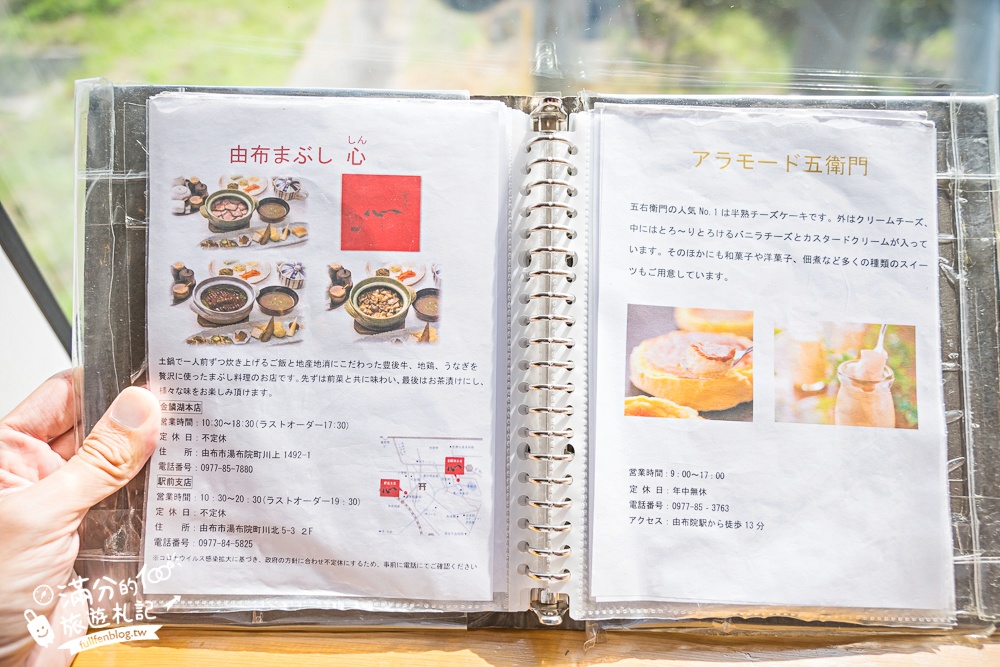 しん
由布まぶし 心
心
土鍋で一人前ずつ炊き上げるご飯と地産地消にこだわった豊後牛、地鶏、うなぎを
贅沢に使ったまぶし料理のお店です。先ずは前菜と共に味わい、最後はお茶漬けにし、
様々な味をお楽しみ頂けます。
金鱗湖本店
営業時間：10:30～18:30(ラストオーダー17:30)
定 休 日：不定休
住　　所：由布市湯布院町川上 1492-1
電話番号：0977-85-7880
駅前支店
営業時間：10：30～20：30(ラストオーダー19：30)
定 休 日：不定休
住　　所：由布市湯布院町川北 5-3 2F
電話番号：0977-84-5825
※コロナウイルス感染拡大に基づき、政府の方針に合わせ不定休にするため、事前に電話にてご確認ください
アラモード五衛門
五右衛門の人気 No.1 は半熟チーズケーキです。外はクリームチーズ、
中にはとろ～りとろけるバニラチーズとカスタードクリームが入って
います。そのほかにも和菓子や洋菓子、佃煮など多くの種類のスイー
ツもご用意しています。
営業時間：9：00～17：00
定 休 日：年中無休
電話番号：0977-85‐3763
アクセス：由布院駅から徒歩 13 分
滿分的
旅遊札記
fullfenblog.tw